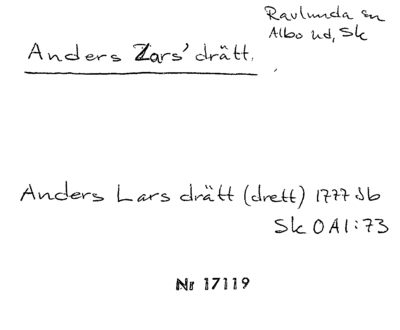 Ravlunda sn
Albo hd, Sk
Anders Lars'drätt.
Anders Lars drätt (drett) 1777 Jb
Sk OAI:73
Nr 17119